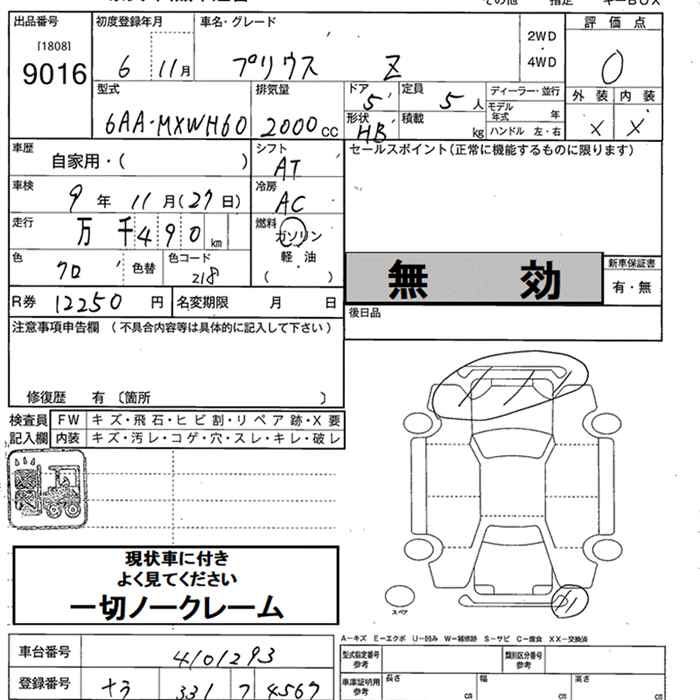 出品番号 初度登録年月 車名・グレード 評価点
[1808]
9016
6 11月 プリウス Z 2WD・4WD 0
型式 排気量 ドア 定員 ディーラー・並行 外装 内装
6AA-MXWH60 2000cc 5 5人 モデル年式 年 × ×
形状 積載
HB kg ハンドル 左・右
車歴 シフト セールスポイント(正常に機能するものに限ります)
自家用・( ) AT
車検 冷房
9年 11月(27日) AC
走行 燃料
万 千490 km ガソリン
色 色替 色コード 軽油 新車保証書
クロ 218 ( ) 無効 有・無
R券 12250円 名変期限 月 日 後日品
注意事項申告欄 (不具合内容等は具体的に記入して下さい)
修復歴 有 〔箇所 〕
検査員 FW キズ・飛石・ヒビ割・リペア跡・X要
記入欄 内装 キズ・汚レ・コゲ・穴・スレ・キレ・破レ
現状車に付き
よく見てください
一切ノークレーム
スペア
A-キズ E-エクボ U-凹み W-補修跡 S-サビ C-腐食 XX-交換済
車台番号 4101293 型式指定番号 参考 類別区分番号 参考
登録番号 331 4567 車庫証明用 参考 長さ cm 幅 cm 高さ cm